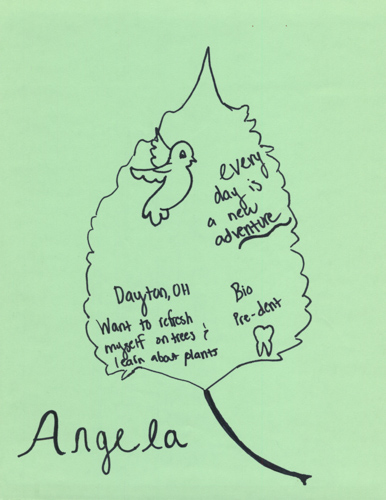 every
day is
a new
adventure
Dayton, OH
Want to refresh
myself on trees &
learn about plants
Bio
Pre-dent
Angela